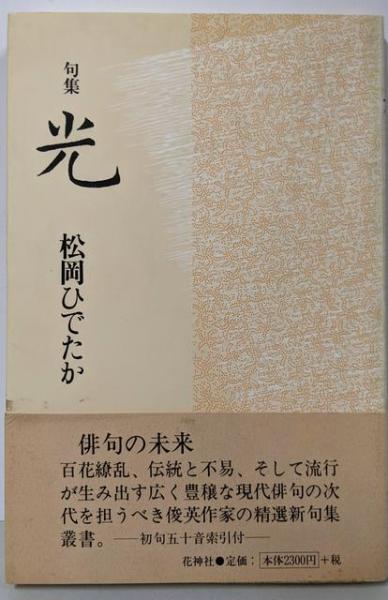 句集
光
松岡ひでたか
俳句の未来
百花繚乱、伝統と不易、そして流行
が生み出す広く豊穣な現代俳句の次
代を担うべき俊英作家の精選新句集
叢書。──初句五十音索引付──
花神社●定価;本体2300円+税